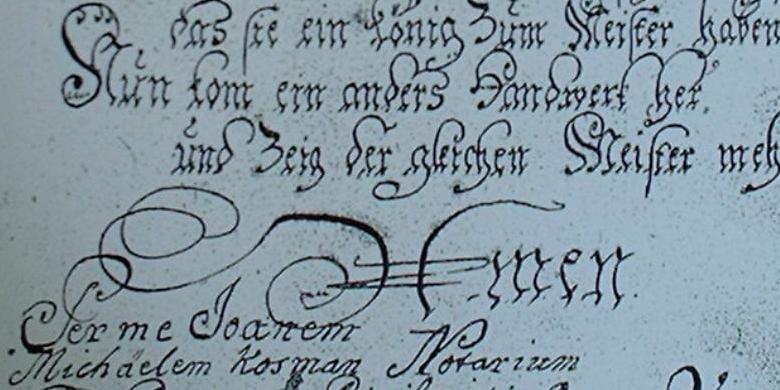 das sie ein könig Zum Meister haben
Nun kom ein anders Handwerk her,
und Zeig der gleichen Meister meh
Amen
Per me Joanem
Michäelem Kosman Notarium